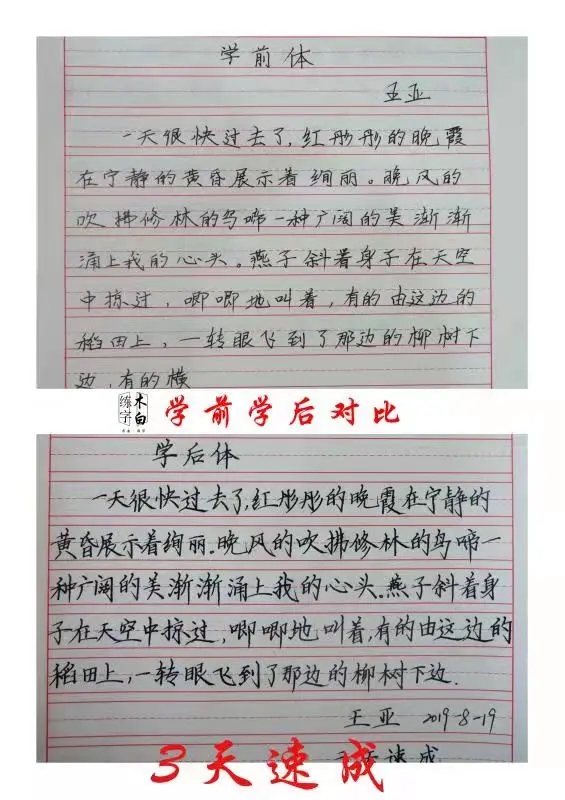 学前体
王亚
一天很快过去了,红彤彤的晚霞
在宁静的黄昏展示着绚丽。晚风的
吹拂修林的鸟啼一种广阔的美渐渐
涌上我的心头。燕子斜着身子在天空
中掠过,唧唧地叫着,有的由这边的
稻田上,一转眼飞到了那边的柳树下
边,有的横
木白
练字
学前学后对比
学后体
一天很快过去了,红彤彤的晚霞在宁静的
黄昏展示着绚丽.晚风的吹拂修林的鸟啼一
种广阔的美渐渐涌上我的心头.燕子斜着身
子在天空中掠过,唧唧地叫着,有的由这边的
稻田上,一转眼飞到了那边的柳树下边.
王亚 2019-8-19
天速成
3天速成